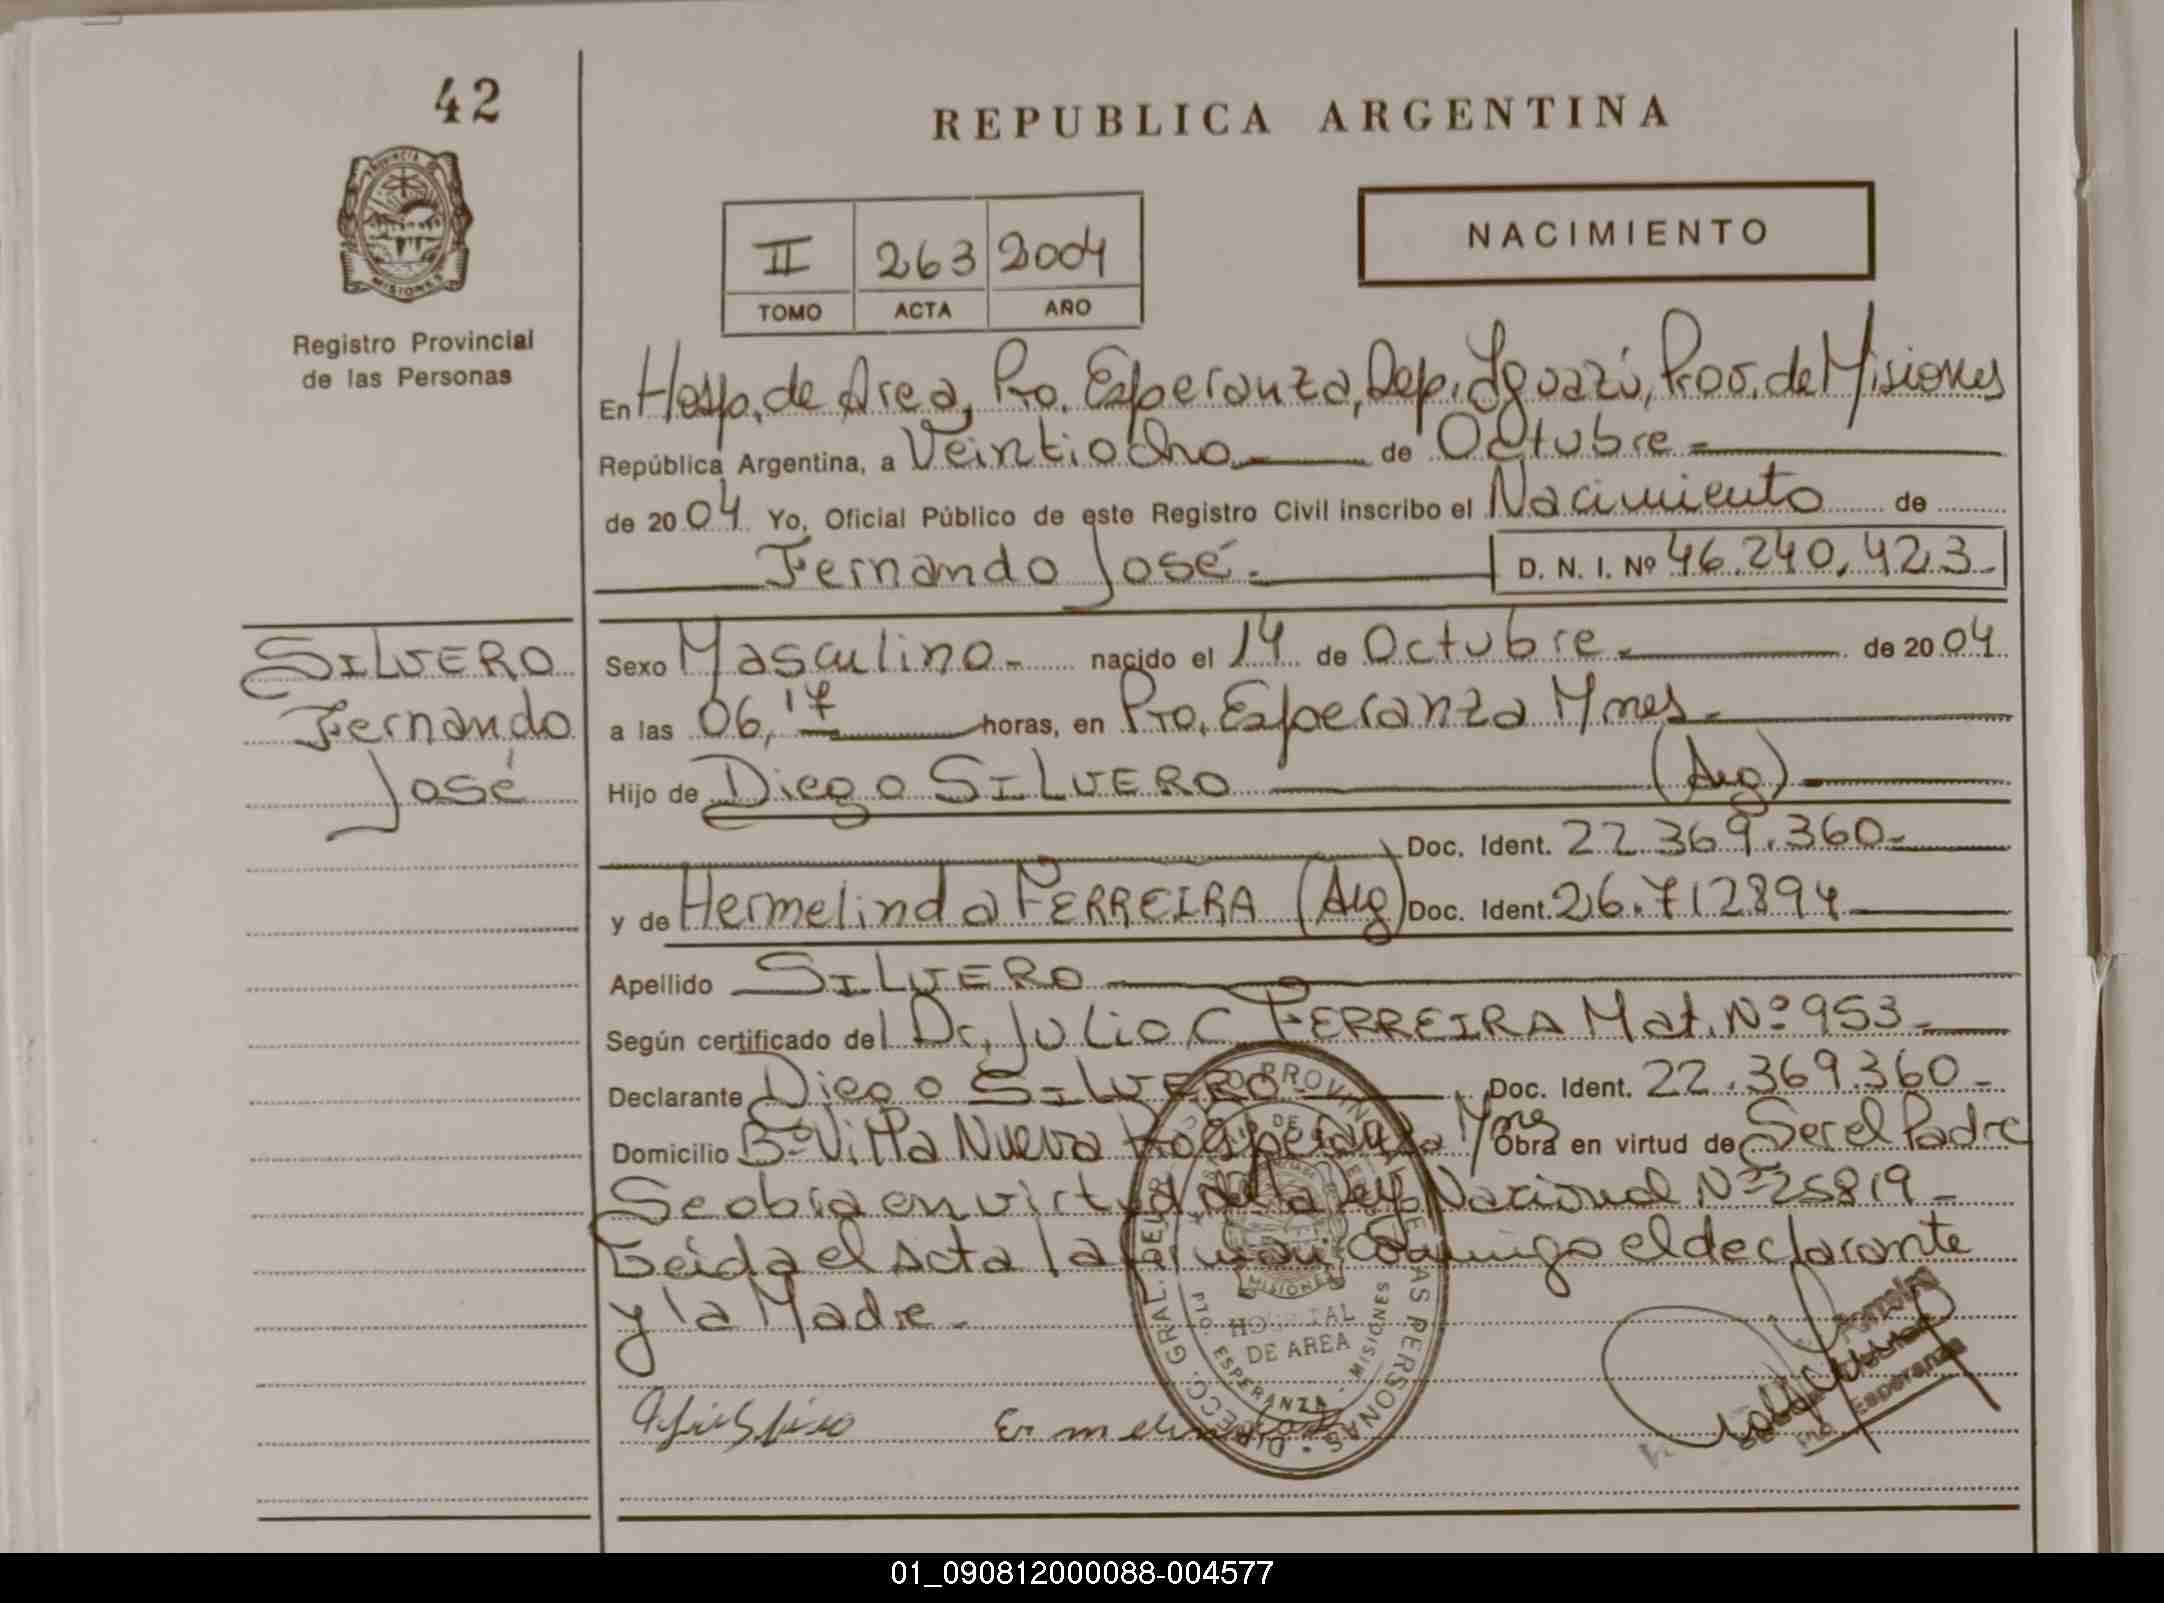 42
REPUBLICA ARGENTINA
PROVINCIA DE
MISIONES
Registro Provincial
de las Personas
II 263 2004
TOMO ACTA AÑO
NACIMIENTO
En Hosp. de Area, Pto. Esperanza, Dep. Iguazú, Prov. de Misiones
República Argentina, a Veintiocho de Octubre
de 2004 Yo, Oficial Público de este Registro Civil inscribo el Nacimiento de
Fernando José. D. N. I. Nº 46.240.423
SILVERO
Fernando
José
Sexo Masculino nacido el 14 de Octubre de 2004
a las 06,17 horas, en Pto. Esperanza Mnes.
Hijo de Diego SILVERO (Arg)
Doc. Ident. 22.369.360
y de Hermelinda FERREIRA (Arg) Doc. Ident. 26.712894
Apellido SILVERO
Según certificado del Dr. Julio C FERREIRA Mat. Nº 953
Declarante Diego SILVERO Doc. Ident. 22.369.360
Domicilio Bº Villa Nueva Pto Esperanza Mnes Obra en virtud de Ser el Padre
Se obra en virtud de la Ley Nacional Nº 25819
Leida el Acta la firman Conmigo el declarante
y la Madre.
DIRECC. GRAL. DEL PROVIN LAS PERSONAS
MISIONES
HOSPITAL
DE AREA
PTO. ESPERANZA - MISIONES
Esperanza
01_090812000088-004577